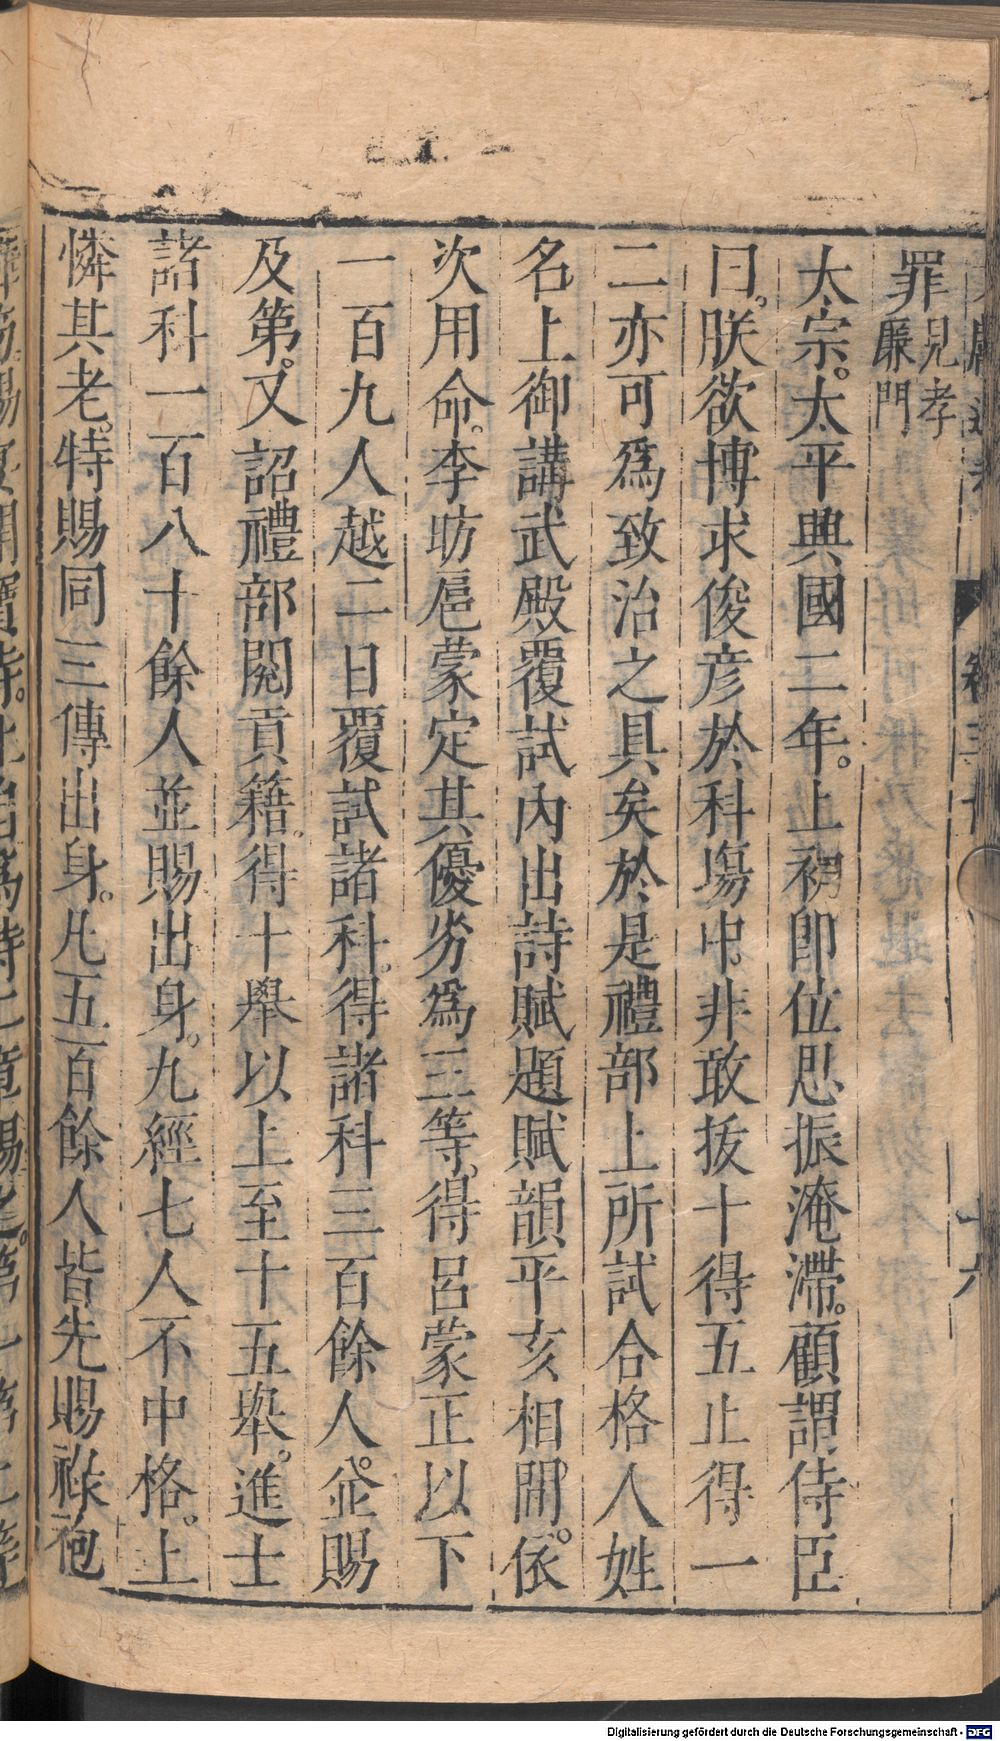 罪見孝廉門
太宗。太平興國二年。上初即位思振淹滯。顧謂侍臣
曰。朕欲博求俊彥於科塲中。非敢拔十得五止得一
二亦可爲致治之具矣於是禮部上所試合格人姓
名上御講武殿覆試內出詩賦題賦韻平亥相間。依
次用命。李昉扈蒙定其優劣爲三等。得呂蒙正以下
一百九人越二日覆試諸科。得諸科三百餘人。並賜
及第。又詔禮部閱貢籍。得十舉以上至十五舉。進士
諸科一百八十餘人並賜出身。九經七人不中格。上
憐其老。特賜同三傳出身。凡五百餘人皆先賜祿袍
Digitalisierung gefördert durch die Deutsche Forschungsgemeinschaft - DFG